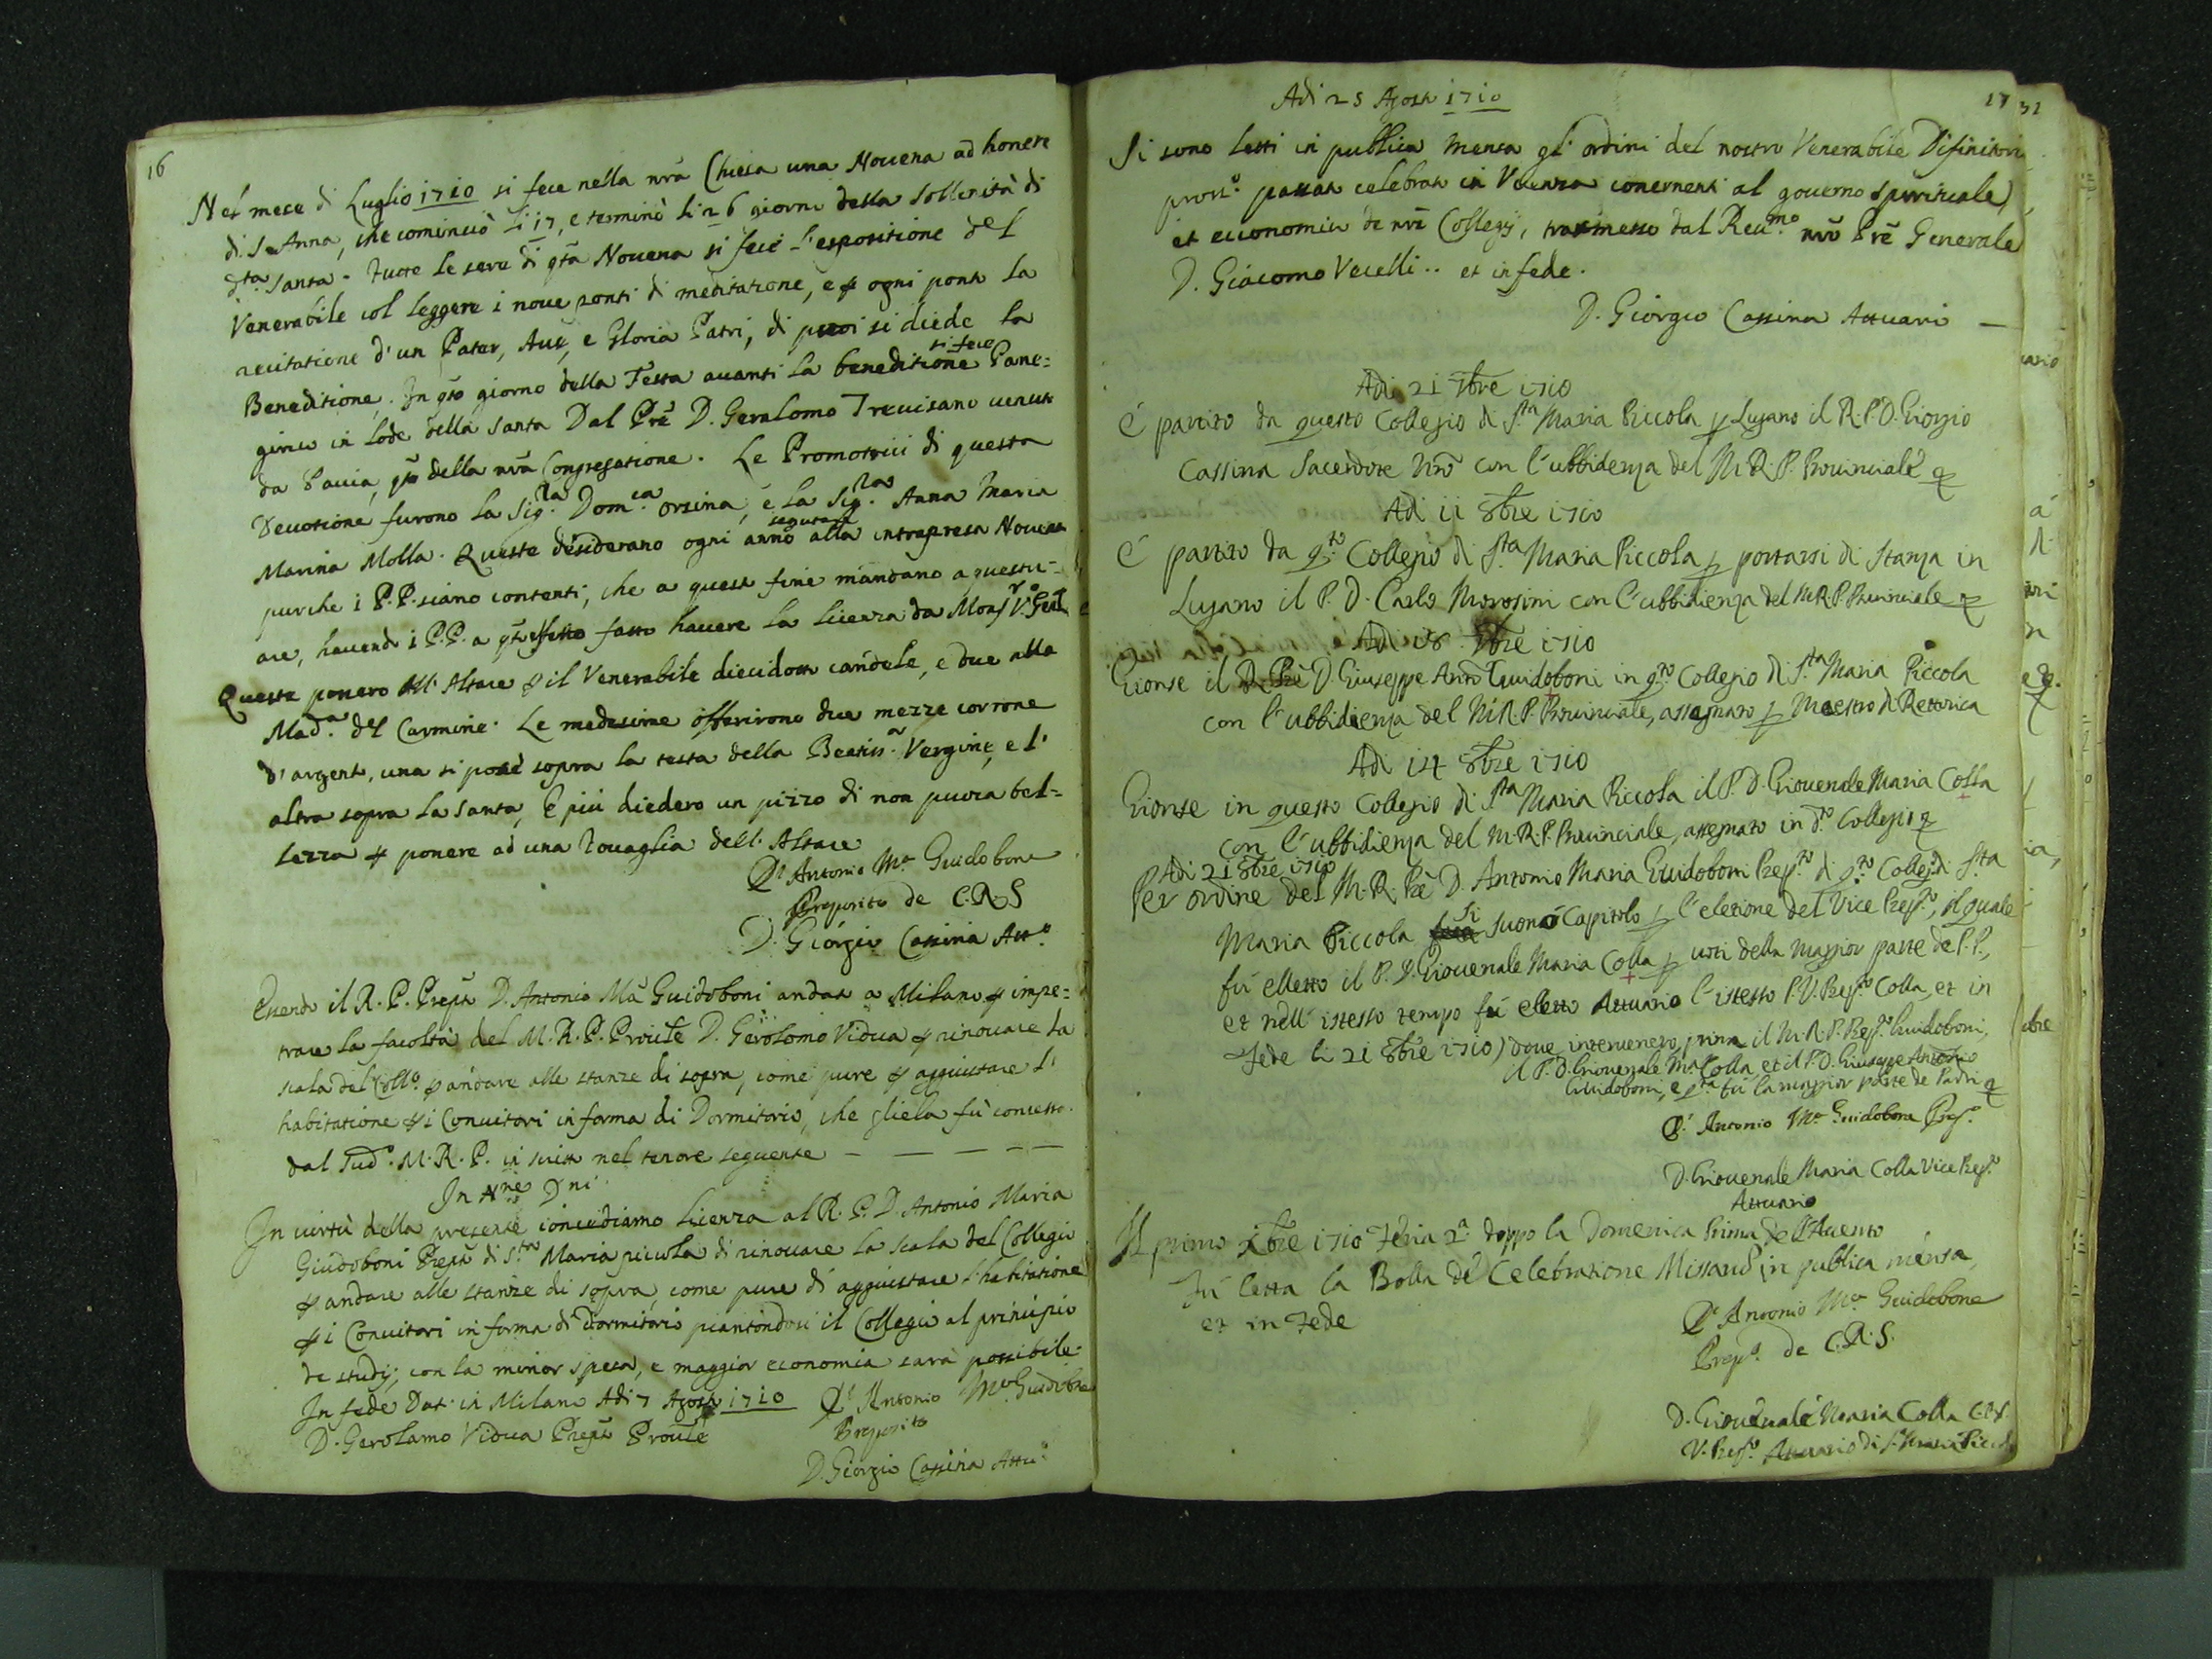 16
Nel mese di Luglio 1710 si fece nella nrã Chiesa una Nouena ad honore
di S.a Anna, che cominciò li 17, e terminò li 26 giorno della sollenità di
d.ta Santa. Tutte le sere di q̃ta Nouena si fece l'espositione del
Venerabile col leggere i noue ponti di meditatione, e p ogni ponto la
recitatione d'un Pater, Aue, e Gloria Patri, di poi si diede la
Beneditione. In q̃to giorno della Festa auanti la beneditione si fece Pane=
girico in lode della Santa Dal Prẽ D. Geralomo Treuisano uenuto
da Pauia, della nrã Congregatione. Le Promotrici di questa
Deuotione furono la Sig.ra Dom.ca Orsina, e la Sig.ra Anna Maria
Marina Molla. Queste desiderano ogni anno seguitare alla intrapresa Nouena
purche i P.P. siano contenti, che a questo fine mandano a questu-
are, hauendo i P.P. a q̃to effetto fatto hauere la licenza da Mons.r V.o Gen.l
Queste ponero all'Altare p il Venerabile diecidotto candele, e due alla
Mad.a del Carmine. Le medesime offerirono due mezze corrone
d'argento, una si pose sopra la testa della Beatiss.a Vergine, e l'
altra sopra la Santa, e più diedero un pizzo di non puoca bel=
lezza p ponere ad una Touaglia dell'Altare
D. Antonio M.a Guidobone
Preposito de C.R.S
D. Giorgio Cassina Att.o
Essendo il R.P. Prepto D. Antonio Mã Guidoboni andato a Milano p impe=
trare la facoltà del M.R.P. Prouĩle D. Gerolomo Vidua p rinouare la
scala del Coll.o p andare alle stanze di sopra, come pure p aggiustare l'
habitatione p i Conuitori in forma di Dormitorio, che gliela fù concessa
dal Sud.o M.R.P. in scritto nel tenore seguente — — — — —
In Nne Dni
In uirtù della presente concediamo licenza al R.P.D. Antonio Maria
Giudoboni Prepto di S.ta Maria piccola di rinouare la scala del Collegio
p andare alle stanze di sopra, come pure di aggiustare l'habitatione
p i Conuitori in forma di dormitorio piantondosi il Collegio al principio
de studij, con la minor spesa, e maggior economia sarà possibile.
In fede Dat. in Milano Adi 7 Agosto 1710 D. Antonio M.a Guidobone
D. Gerolamo Vidua Prepto Prouĩle Preposito
D. Giorgio Cassina Attu.o
17 31
Adi 25 Agosto 1710
Si sono letti in publica mensa gl'ordini del nostro Venerabile Difinitorio
pross.o passato celebrato in Vicenza concernenti al gouerno spirituale,
et economico de nrĩ Collegij, trasmesso dal Reu.mo nrõ Prẽ Generale
D. Giacomo Vecelli.. et in fede.
D. Giorgio Cassina Attuario —
Adi 21 7bre 1710
È partito da questo Collegio di S.ta Maria Piccola p Lugano il R.P.D. Giorgio
Cassina Sacerdote Nrõ con l'ubbidenza del M.R.P. Prouinciale
Adi 11 8bre 1710
È partito da q.to Collegio di S.ta Maria Piccola p portarsi di stanza in
Lugano il P.D. Carlo Morosini con l'ubbidienza del M.R.P. Prouinciale
Gionse il D. Giuseppe Antõ Guidoboni in q.to Collegio di S.ta Maria Piccola
con l'ubbidienza del M.R.P. Prouinciale, assegnato p Maestro di Rettorica
Adi 14 8bre 1710
Gionse in questo Collegio di S.ta Maria Piccola il P.D. Giouenale Maria Colla
con l'ubbidienza del M.R.P. Prouinciale, assegnato in d.to Collegio
Adi 21 8bre 1710
Per ordine del M.R. Prẽ D. Antonio Maria Guidoboni Prep.to di q.to Colleg.o di S.ta
Maria Piccola si suonò Capitolo p l'eletione del Vice Prep.to, il quale
fù elletto il P.D. Giouenale Maria Colla p uoti della maggior parte de P.P.,
et nell'istesso tempo fù eletto Attuario l'istesso P.V. Prep.to Colla, et in
Fede li 21 8bre 1710) doue interuenero prima il M.R.P. Prep.to Guidoboni,
il P.D. Giouenale Mã Colla et il P.D. Giuseppe Antonio
Guidoboni, e q.ta fù la maggior parte de Padri
D. Antonio M.a Guidobone Prep.o
D. Giouenale Maria Colla Vice Prep.to
Attuario
Il primo Xbre 1710 Feria 2.a doppo la Domenica Prima dell'Auento
Fù letta la Bolla de Celebratione Missarũ in publica mensa,
et in Fede
D. Antonio M.a Guidobone
Prep.o de C.R.S.
D. Giouenale Maria Colla C.R.S.
V. Prep.to Attuario di S. Maria Piccola